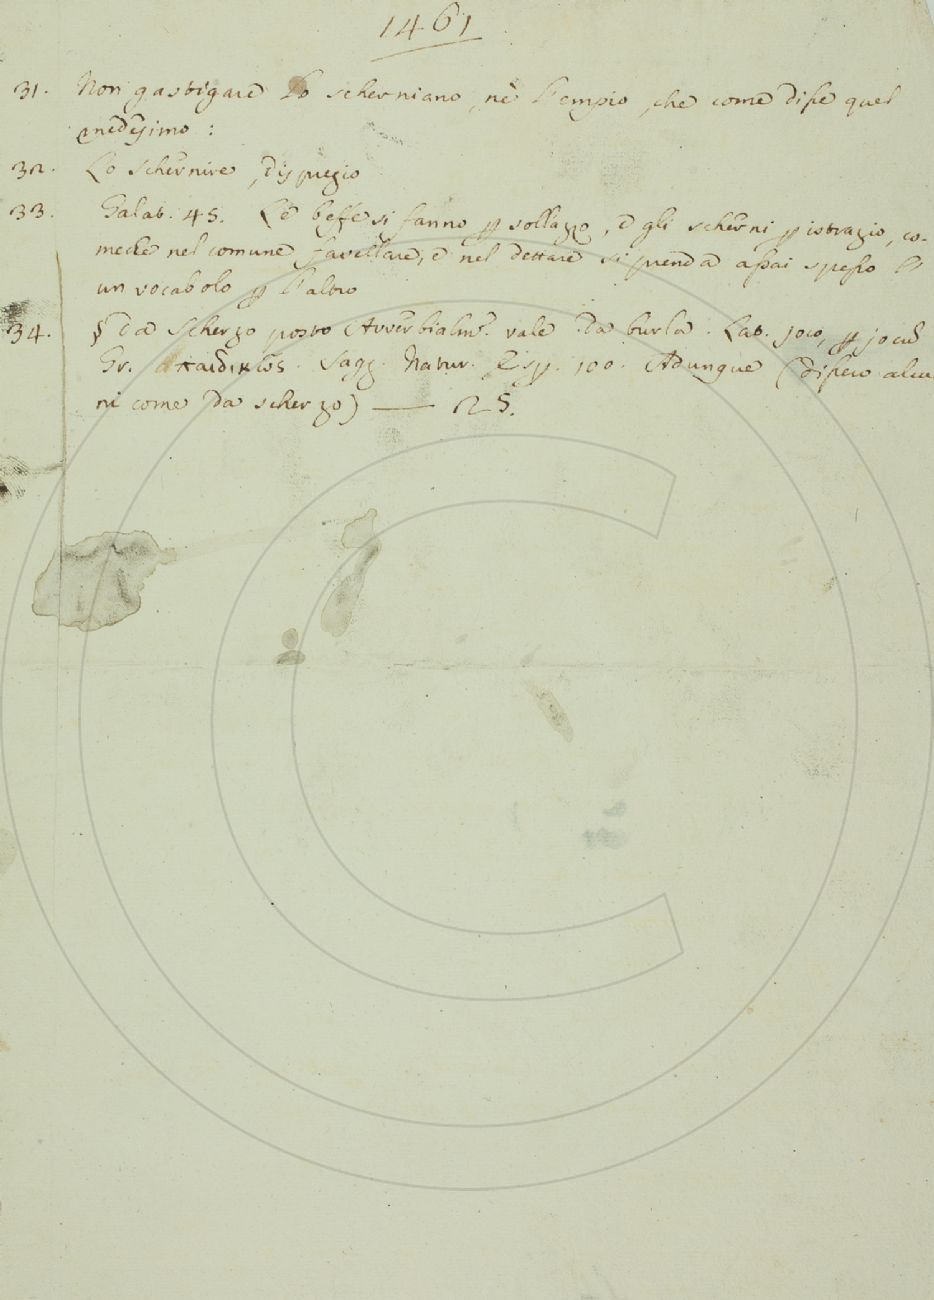 1461
31. Non gastigare lo scherniano, nè l'empio, che come disse quel
medesimo :
32. Lo schernire, dispregio
33. Galat. 45. Le beffe si fanno p sollazzo, e gli scherni p istrazio, co-
mechè nel comune favellare, e nel dettare si prenda assai spesso l'
un vocabolo p l'altro
34. § da Scherzo posto Avverbialm.e vale da burla. Lat. joco, p jocũ
Gr. παιδικῶς. Sagg. Natur. Esp. 100. Adunque (dissero alcu
ni come da scherzo) — 25.